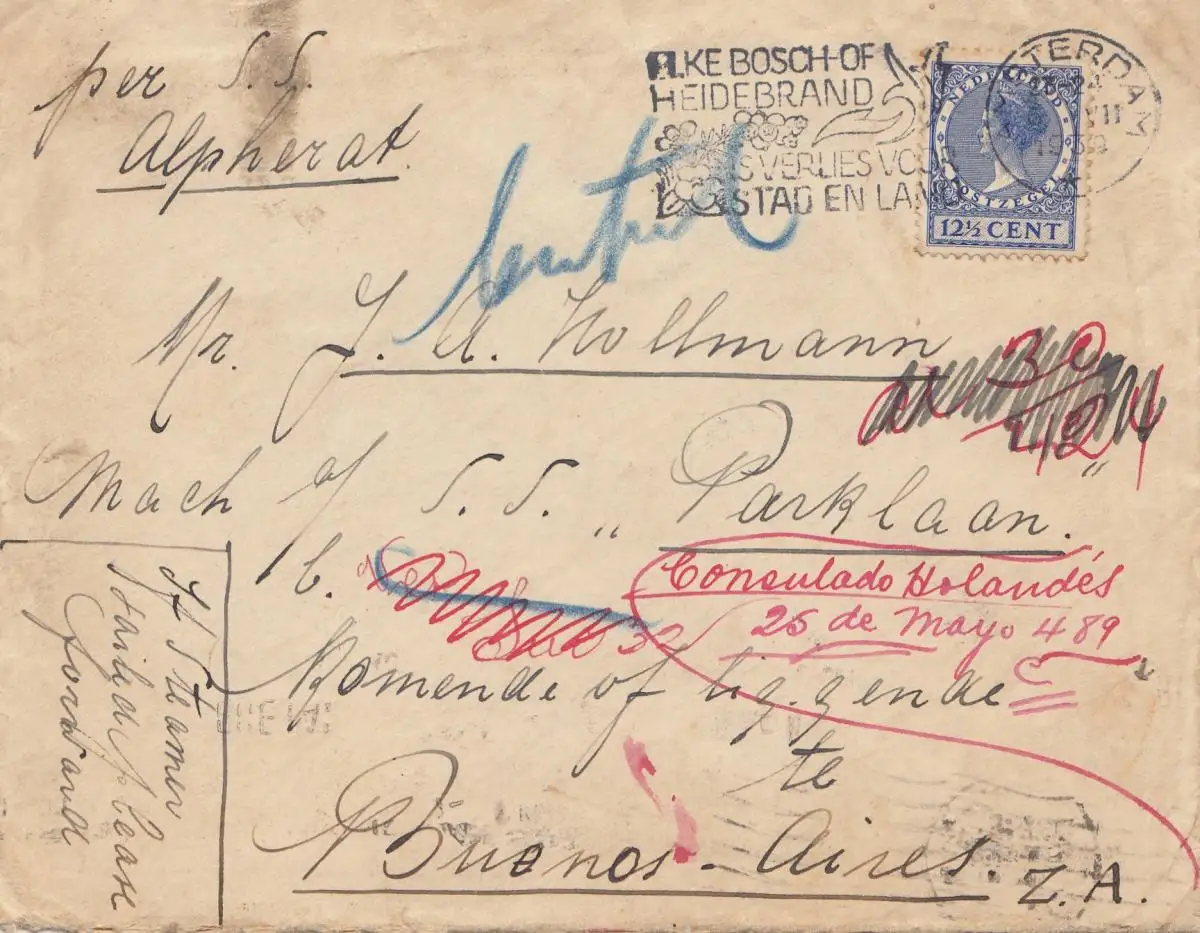 per S.S.
Alpherat.
ELKE BOSCH-OF
HEIDEBRAND
IS VERLIES VOOR
STAD EN LAND
TERDAM
VII
NEDERLAND
POSTZEGEL
12½ CENT
Mr. J. A. Hollmann
30
Mach o/ S.S. „Parklaan."
Consulado Holandés
25 de Mayo 489
Komende of liggende
te
Buenos-Aires. Z.A.
If Steamer
sailed please
forward